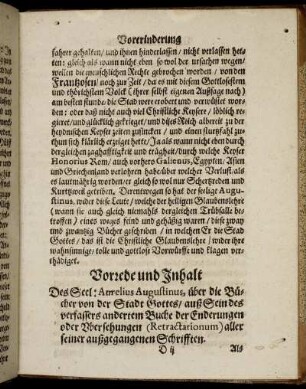 Vorerinderung
fahren gehalten / und ihnen hinderlassen / nicht verlassen het-
ten: gleich als wann nicht eben so wol der ursachen wegen /
wollen die menschlichen Rechte gebrochen worden / von den
Frantzosen / noch zur Zeit / da es mit diesem Gottlosestem
und thörichstem Volck (ihrer selbst eigenen Außsage nach)
am besten stund / die Stad were erobert und verwüstet wor-
den: oder daß nicht auch viel Christliche Keyser / löblich re-
gieret / und glücklich gekrieget / und dies Reich allereit zu der
heydnischen Keyser zeiten zusincken / und einen sturtzfahl zu-
thun sich klärlich erzeiget hette / Ja als wann nicht eben durch
dergleichen zaghafftigkeit und trägheit / durch welche Keyser
Honorius Rom / auch vorhero Galienus, Egypten / Asien
und Griechenland verlohren habe über welcher Verlust als
es lautmährig worden / er gleich so wol nur Schertzreden und
Kurtzweil getrieben. Derentwegen so hat der seelige Augu-
stinus, wider diese Leute / welche der heiligen Glaubenslehre
(wann sie auch gleich niemahls dergleichen Trübsalle be-
troffen / ) eines weges feind und gehässig waren / diese zwey
und zwantzig Bücher geschrieben / in welchen Er die Stad
Gottes / das ist die Christliche Glaubenslehre / wider ihre
wahnsinnige / tolle und gottlose Vorwürffe und klagen ver-
thädiget.
Vorrede und Inhalt
Des Seel: Aurelius Augustinus, über die Bü-
cher von der Stadt Gottes / auß Sein des
verfassers anderem Buche der Enderungen
oder Ubersehungen (Retractarionum) aller
seiner außgegangenen Schrifften.
D ij Als